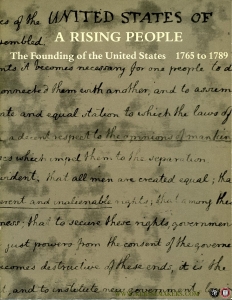 s of the UNITED STATES OF
sembled.
A RISING PEOPLE
The Founding of the United States 1765 to 1789
nts it becomes necessary for one people to d
onnected them with another, and to assum
ate and equal station to which the laws of
a decent respect to the opinions of mankin
es which impel them to the separation
vident, that all men are created equal; tha
erent and inalienable rights; that among the
ness; that to secure these rights, governmen
just powers from the consent of the governe
ecomes destructive of these ends, it is the
t, and to institute new government, la